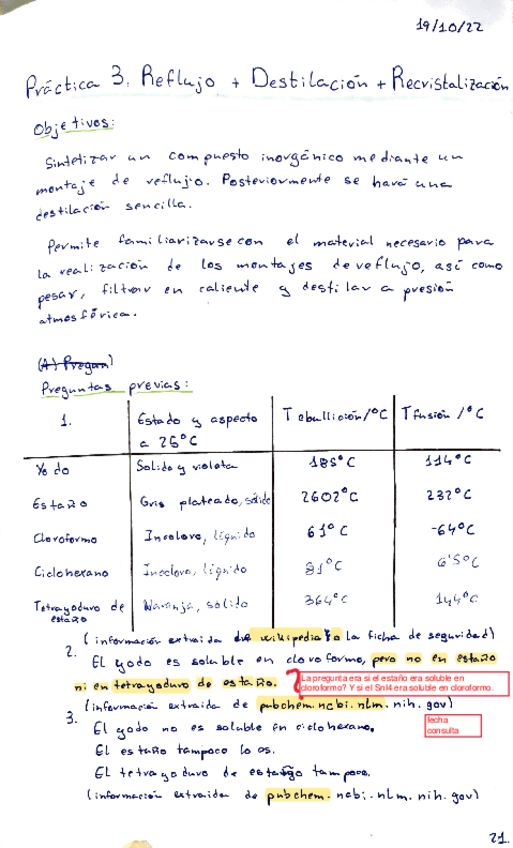 19/10/22
Práctica 3. Reflujo + Destilación + Recristalización
Objetivos:
Sintetizar un compuesto inorgánico mediante un
montaje de reflujo. Posteriormente se hará una
destilación sencilla.
Permite familiarizarse con el material necesario para
la realización de los montajes de reflujo, así como
pesar, filtrar en caliente y destilar a presión
atmosférica.
(A) Pregun)
Preguntas previas:
1. Estado y aspecto a 25°C T ebullición/°C T fusión /°C
Yodo Solido y violeta 185°C 114°C
Estaño Gris plateado, sólido 2602°C 232°C
Cloroformo Incoloro, líquido 61°C -64°C
Ciclohexano Incoloro, líquido 81°C 6'5°C
Tetrayoduro de estaño Naranja, sólido 364°C 144°C
(información extraida de wikipedia y a la ficha de seguridad)
2. El yodo es soluble en cloroformo, pero no en estaño
ni en tetrayoduro de estaño. ? La pregunta era si el estaño era soluble en
cloroformo? Y si el SnI4 era soluble en cloroformo.
(información extraida de pubchem.ncbi.nlm.nih.gov)
fecha
consulta
3. El yodo no es soluble en ciclohexano,
El estaño tampoco lo es.
El tetrayoduro de estaño tampoco.
(información extraida de pubchem.ncbi.nlm.nih.gov)
21.